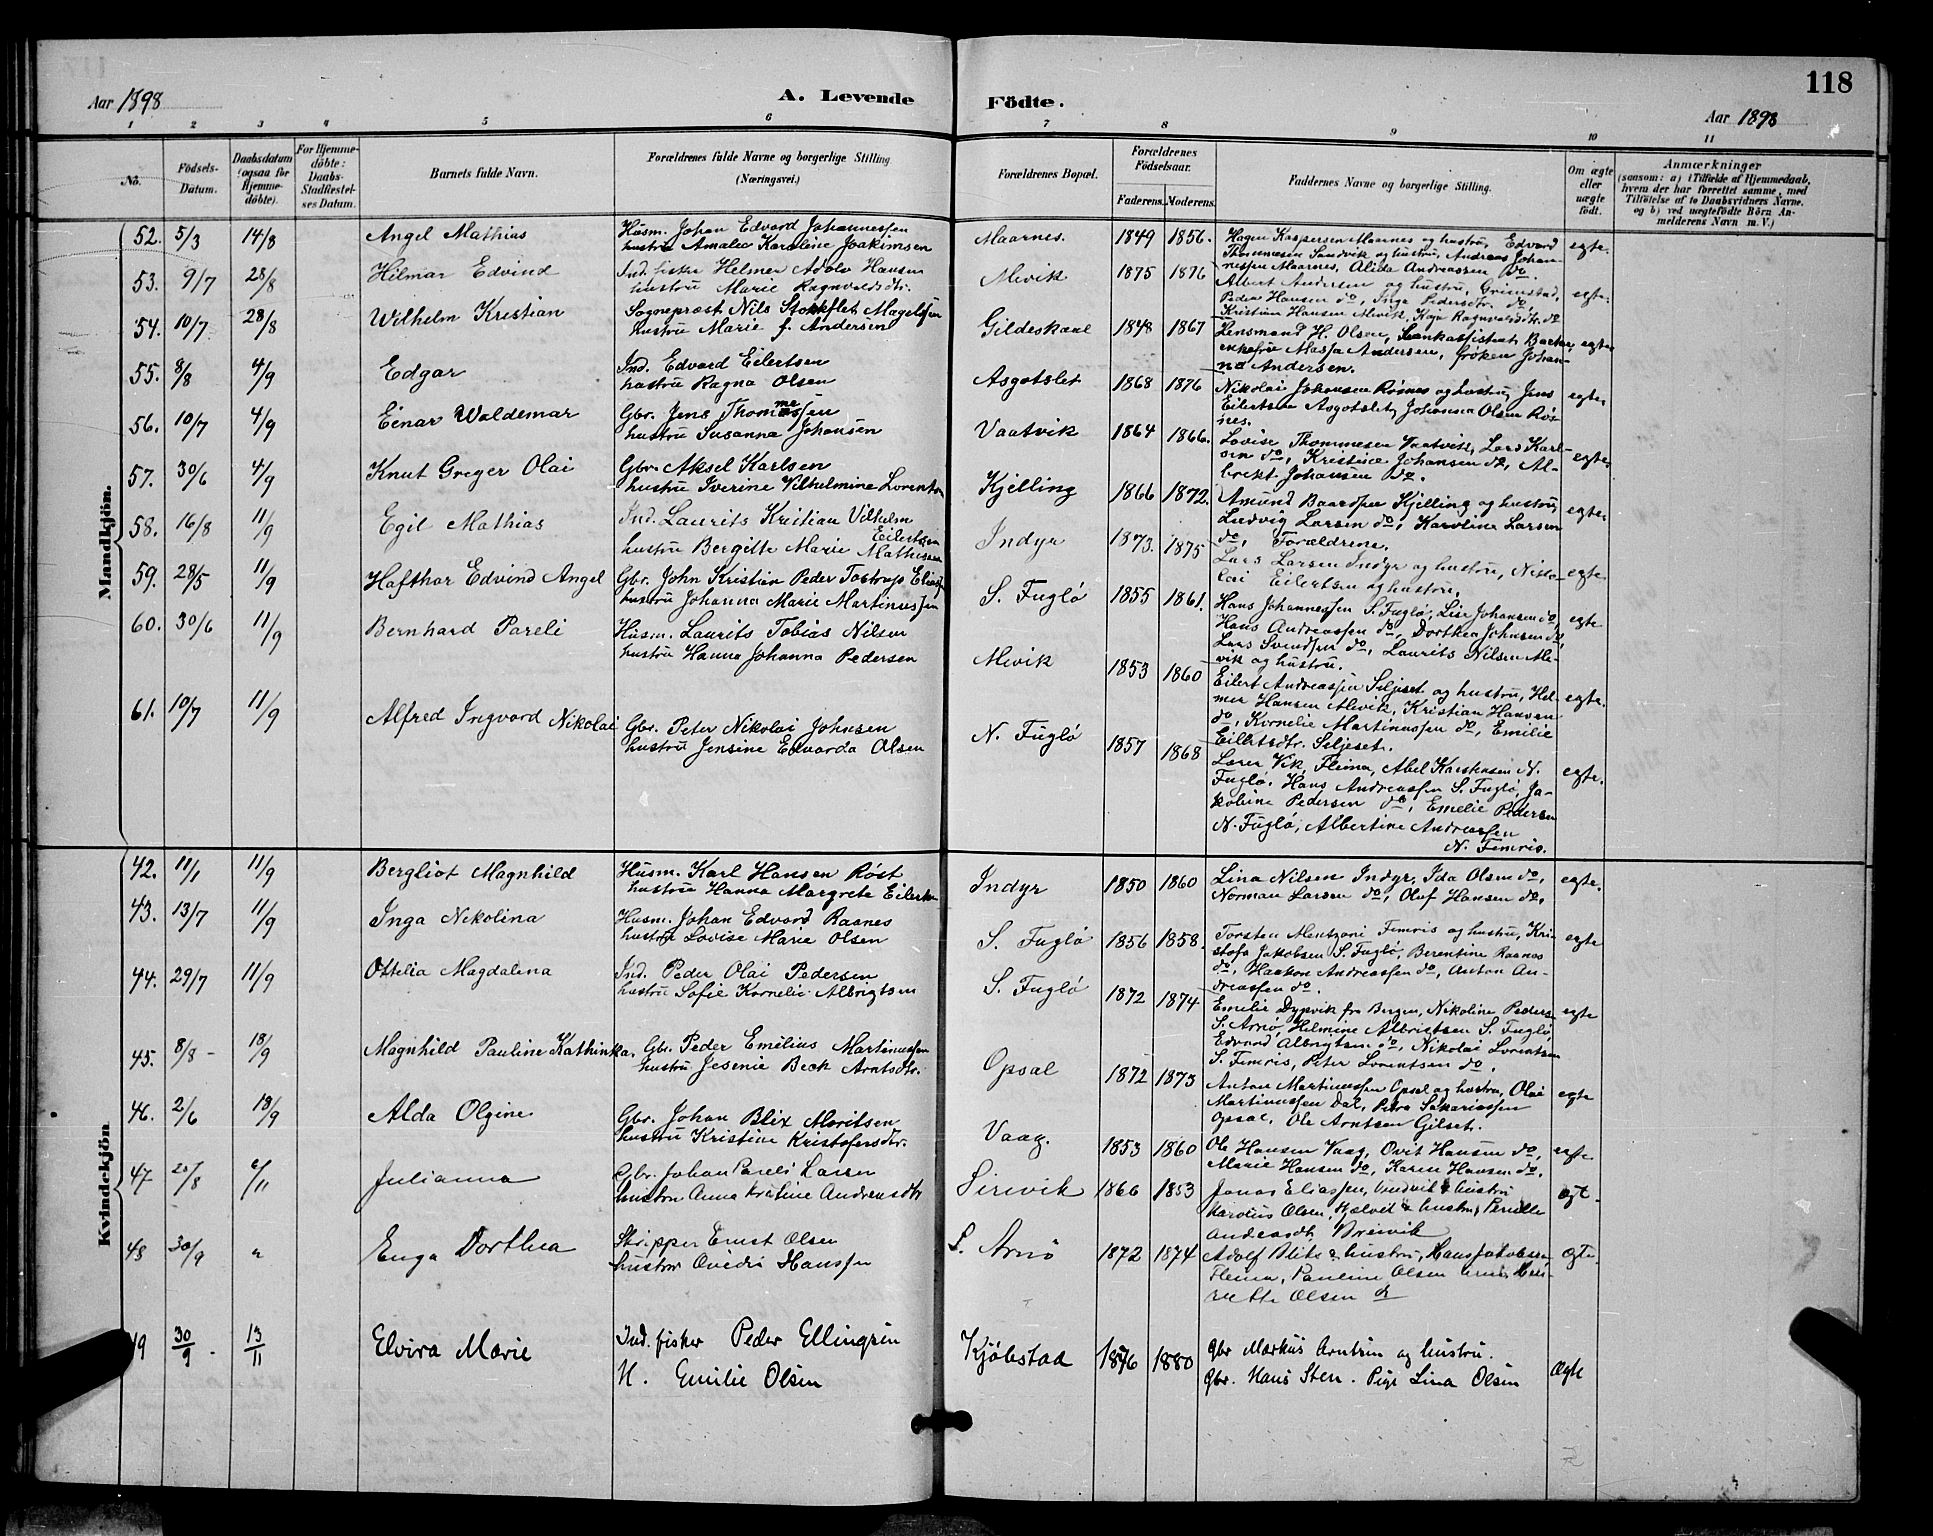 118
Aar 1898
A. Levende
Födte.
Aar 1898
1 2 3 4 5 6 7 8 9 10 11
No.
Födsels-Datum.
Daabsdatum (ogsaa for Hjemme-döbte).
For Hjemme-döbte: Daabs-Stadfæstel-ses Datum.
Barnets fulde Navn.
Forældrenes fulde Navne og borgerlige Stilling.
(Næringsvei.)
Forældrenes Bopæl.
Forældrenes Födselsaar.
Faderens. Moderens.
Faddernes Navne og borgerlige Stilling.
Om ægte eller uægte födt.
Anmærkninger
(saasom: a) i Tilfælde af Hjemmedaab, hvem der har forrettet samme, med Tilföielse af to Daabsvidners Navne. og b) ved uægtefödte Börn An-melderens Navn m. V.)
Mandkjön.
52. 5/3 14/8 Angel Mathias
Husm. Johan Edvard Johannessen
hustru Amalie Karoline Joakimsen
Maarnes. 1849 1856.
Hagen Kaspersen Maarnes og hustru, Edvard
Thommesen Sandvik og hustru, Andreas Johan-
nessen Maarnes, Alida Andreassen do.
egte.
53. 9/7 28/8 Hilmar Edvind
Ind. fisker Helmer Adolv Hansen
hustru Marie Ragnvaldsdtr.
Mevik 1875 1876
Albert Andersen og hustru, Grimstad,
Peder Hansen do, Inga Pedersdtr. do
Kristian Hansen Mevik, Kaja Ragnvaldsdtr. do
egte.
54. 10/7 28/8 Wilhelm Kristian
Sogneprest Nils Stokflet Magelssen
hustru Marie f. Andersen
Gildeskaal 1848 1867
Lensmand H. Olsen,
enkefrue Massa Andersen, frøken Johan-
na Andersen.
egte
55. 8/8 4/9 Edgar
Ind. Edvard Eilertsen
hustru Ragna Olsen
Asgotslet 1868 1876
Nikolai Johansen Røsnes og hustru, Jens
Eilertsen Asgotslet, Johanna Olsen Røs-
nes.
egte
56. 10/7 4/9 Einar Waldemar
Gbr. Jens Thommessen
hustru Susanna Johansen
Vaatvik 1864 1866.
Lovise Thommesen Vaatvik, Lars Karl-
sen do, Kristine Johansen do, Al-
brekt Johansen do.
egte
57. 30/6 4/9 Knut Greger Olai
Gbr. Aksel Karlsen
hustru Iverine Vilhelmine Lorentsen
Kjelling 1866 1872.
Amund Baardsen Kjelling og hustru,
Ludvig Larsen do, Karoline Larsen
do, Forældrene.
egte
58. 16/8 11/9 Egil Mathias
Ind. Laurits Kristian Vilhelm
Eilertsen
hustru Bergitte Marie Mathisen
Indyr 1873. 1875
Lars Larsen Indyr og hustru, Niko-
lai Eilertsen og hustru.
egte
59. 28/5 11/9 Hafthor Edvind Angel
Gbr. John Kristian Peder Tostrup Eliass.
hustru Johanna Marie Martinussen
S. Fuglø 1855 1861.
Hans Johannessen S. Fuglø, Lise Johansen do,
Hans Andreassen do, Dorthea Johnsen do,
Lars Svendsen do, Laurits Nilsen Me-
vik og hustru.
egte
60. 30/6 11/9 Bernhard Pareli
Husm. Laurits Tobias Nilsen
hustru Hanna Johanna Pedersen
Mevik 1853 1860
Eilert Andreassen Seljeset og hustru, Hel-
mer Hansen Mevik, Kristian Hansen
do, Kornelie Martinussen do, Emilie
Eilertsdtr. Seljeset.
egte.
61. 10/7 11/9 Alfred Ingvard Nikolai
Gbr. Peter Nikolai Johnsen
hustru Jensine Edvarda Olsen
N. Fuglø 1857 1868
Lærer Vik, Fleina, Abel Karstensen N.
Fuglø, Hans Andreassen S. Fuglø, Ja-
kobine Pedersen do, Emelie Pedersen
N. Fuglø, Albertine Andreassen
N. Femris.
egte.
Kvindekjön
42. 11/1 11/9 Bergliot Magnhild
Husm. Karl Hansen Röst
hustru Hanna Margrete Eilertsen
Indyr 1850 1860
Lina Nilsen Indyr, Ida Olsen do,
Norman Larsen do, Oluf Hansen do,
egte.
43. 13/7 11/9 Inga Nikolina
Husm. Johan Edvard Raanes
hustru Lovise Marie Olsen
S. Fuglø 1856 1858.
Torsten Mentzoni Femris og hustru, Kri-
stofa Jakobsen S. Fuglø, Berentine Raanes
do, Haakon Andreassen do, Anton An-
dreassen do.
egte
44. 29/7 11/9 Ottelia Magdalena
Ind. Peder Olai Pedersen
hustru Sofie Kornelie Albrigtsen
S. Fuglø 1872 1874
Emelie Dypvik fra Bergen, Nikoline Peders.
S. Arnø, Helmine Albrigtsen S. Fuglø,
Edvard Albrigtsen do, Nikolai Lorentsen
S. Femris, Peter Lorentsen do.
egte
45. 8/8 - 18/9 Magnhild Pauline Kathinka.
Gbr. Peder Emelius Martinussen
hustru Jesenie Beck Arntsdtr.
Opsal 1872 1873
Anton Martinussen Opsal og hustru, Olai
Martinussen Dal, Petra Sakariassen
Opsal, Ole Arntsen Gilset.
egte
46. 2/6 18/9 Alda Olgine
Gbr. Johan Blix Moritsen
hustru Kristine Kristofersdtr.
Vaag. 1853 1860
Ole Hansen Vaag, Ovit Hansen do,
Marie Hansen do, Karen Hansen do.
egte
47 20/8 6/11 Julianna
Gbr. Johan Pareli Larsen
hustru Anna Kristine Andreasdtr
Sirevik 1866 1853
Jonas Eliassen, & hustru
Karolius Olsen, & hustru, Pernille
Andreasdtr. Breivik
egt.
48 30/9 " Enga Dorthea
Skipper Ernst Olsen
hustru Ovedia Hanssen
S. Arnø 1872 1874
Adolf & hustru, Hans Jakobsen,
Fleina, Pauline Olsen Arnø, Hen-
riette Olsen do
egte.
49 30/9 - 13/11 Elvira Marie
Ind. fisker Peder Ellingsen
H. Emilie Olsen
Kjøbstad 1876 1880
Gbr Markus Arntsen og hustru.
Gbr. Hans Sten. Pige Lina Olsen
Ægte